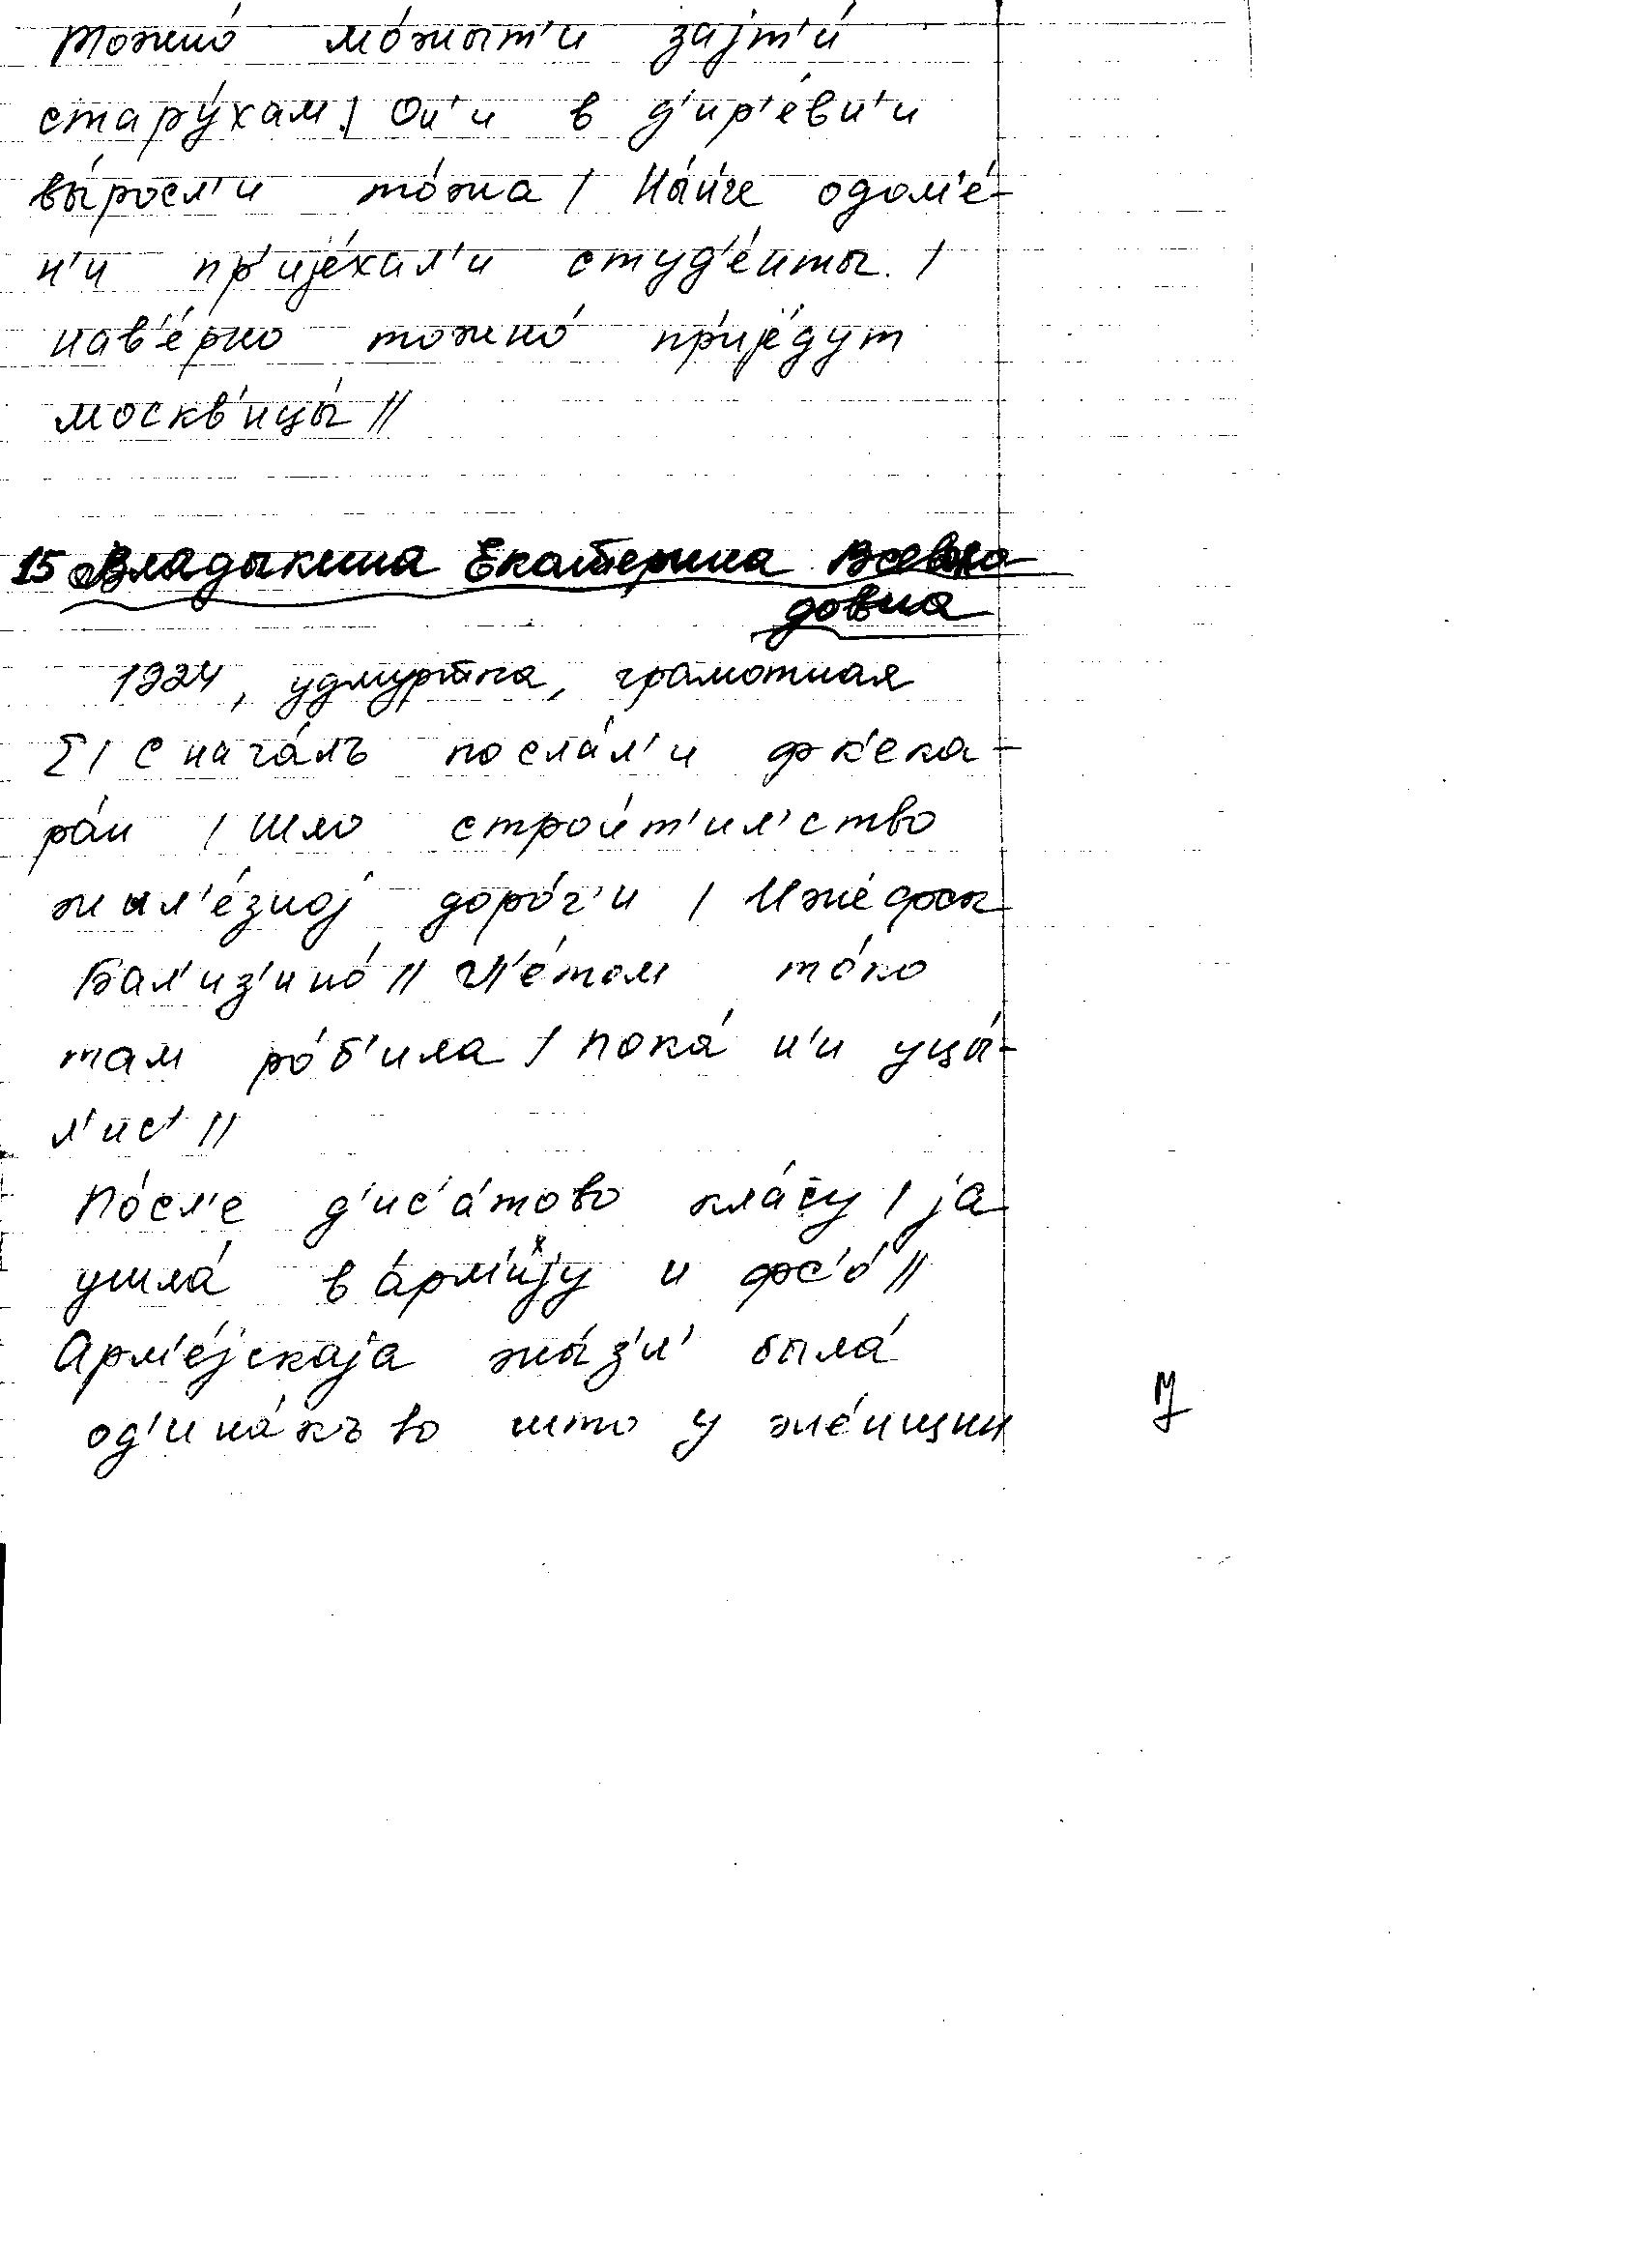 тожно́ мо́жыт'и зајт'и́
стару́хам / Он'и в д'ир'е́вн'и
вы́росл'и то́жа / Ны́н'че одом'е́-
н'и пр'ијéхал'и студ'е́нты. /
нав'е́рно тожно́ пр'ије́дут
москв'ицы́ //
15 Владыкина Екатерина
довна
1924, удмуртка, грамотная
Σ / С нача́лъ посла́л'и ф к'ека-
ра́н / шло строи́т'ил'ство
жыл'е́зној доро́г'и / Иже́фск
Бал'из'ино́ // Л'е́том то́ко
там ро́б'ила / пока́ н'и уцы́-
л'ис' //
По́сл'е д'ис'а́тово кла́су / ја
ушла́ в а́рм'ију и фс'о́ //
Арм'е́јскаја жы́з'н' была́
од'ина́къво што у же́нщин